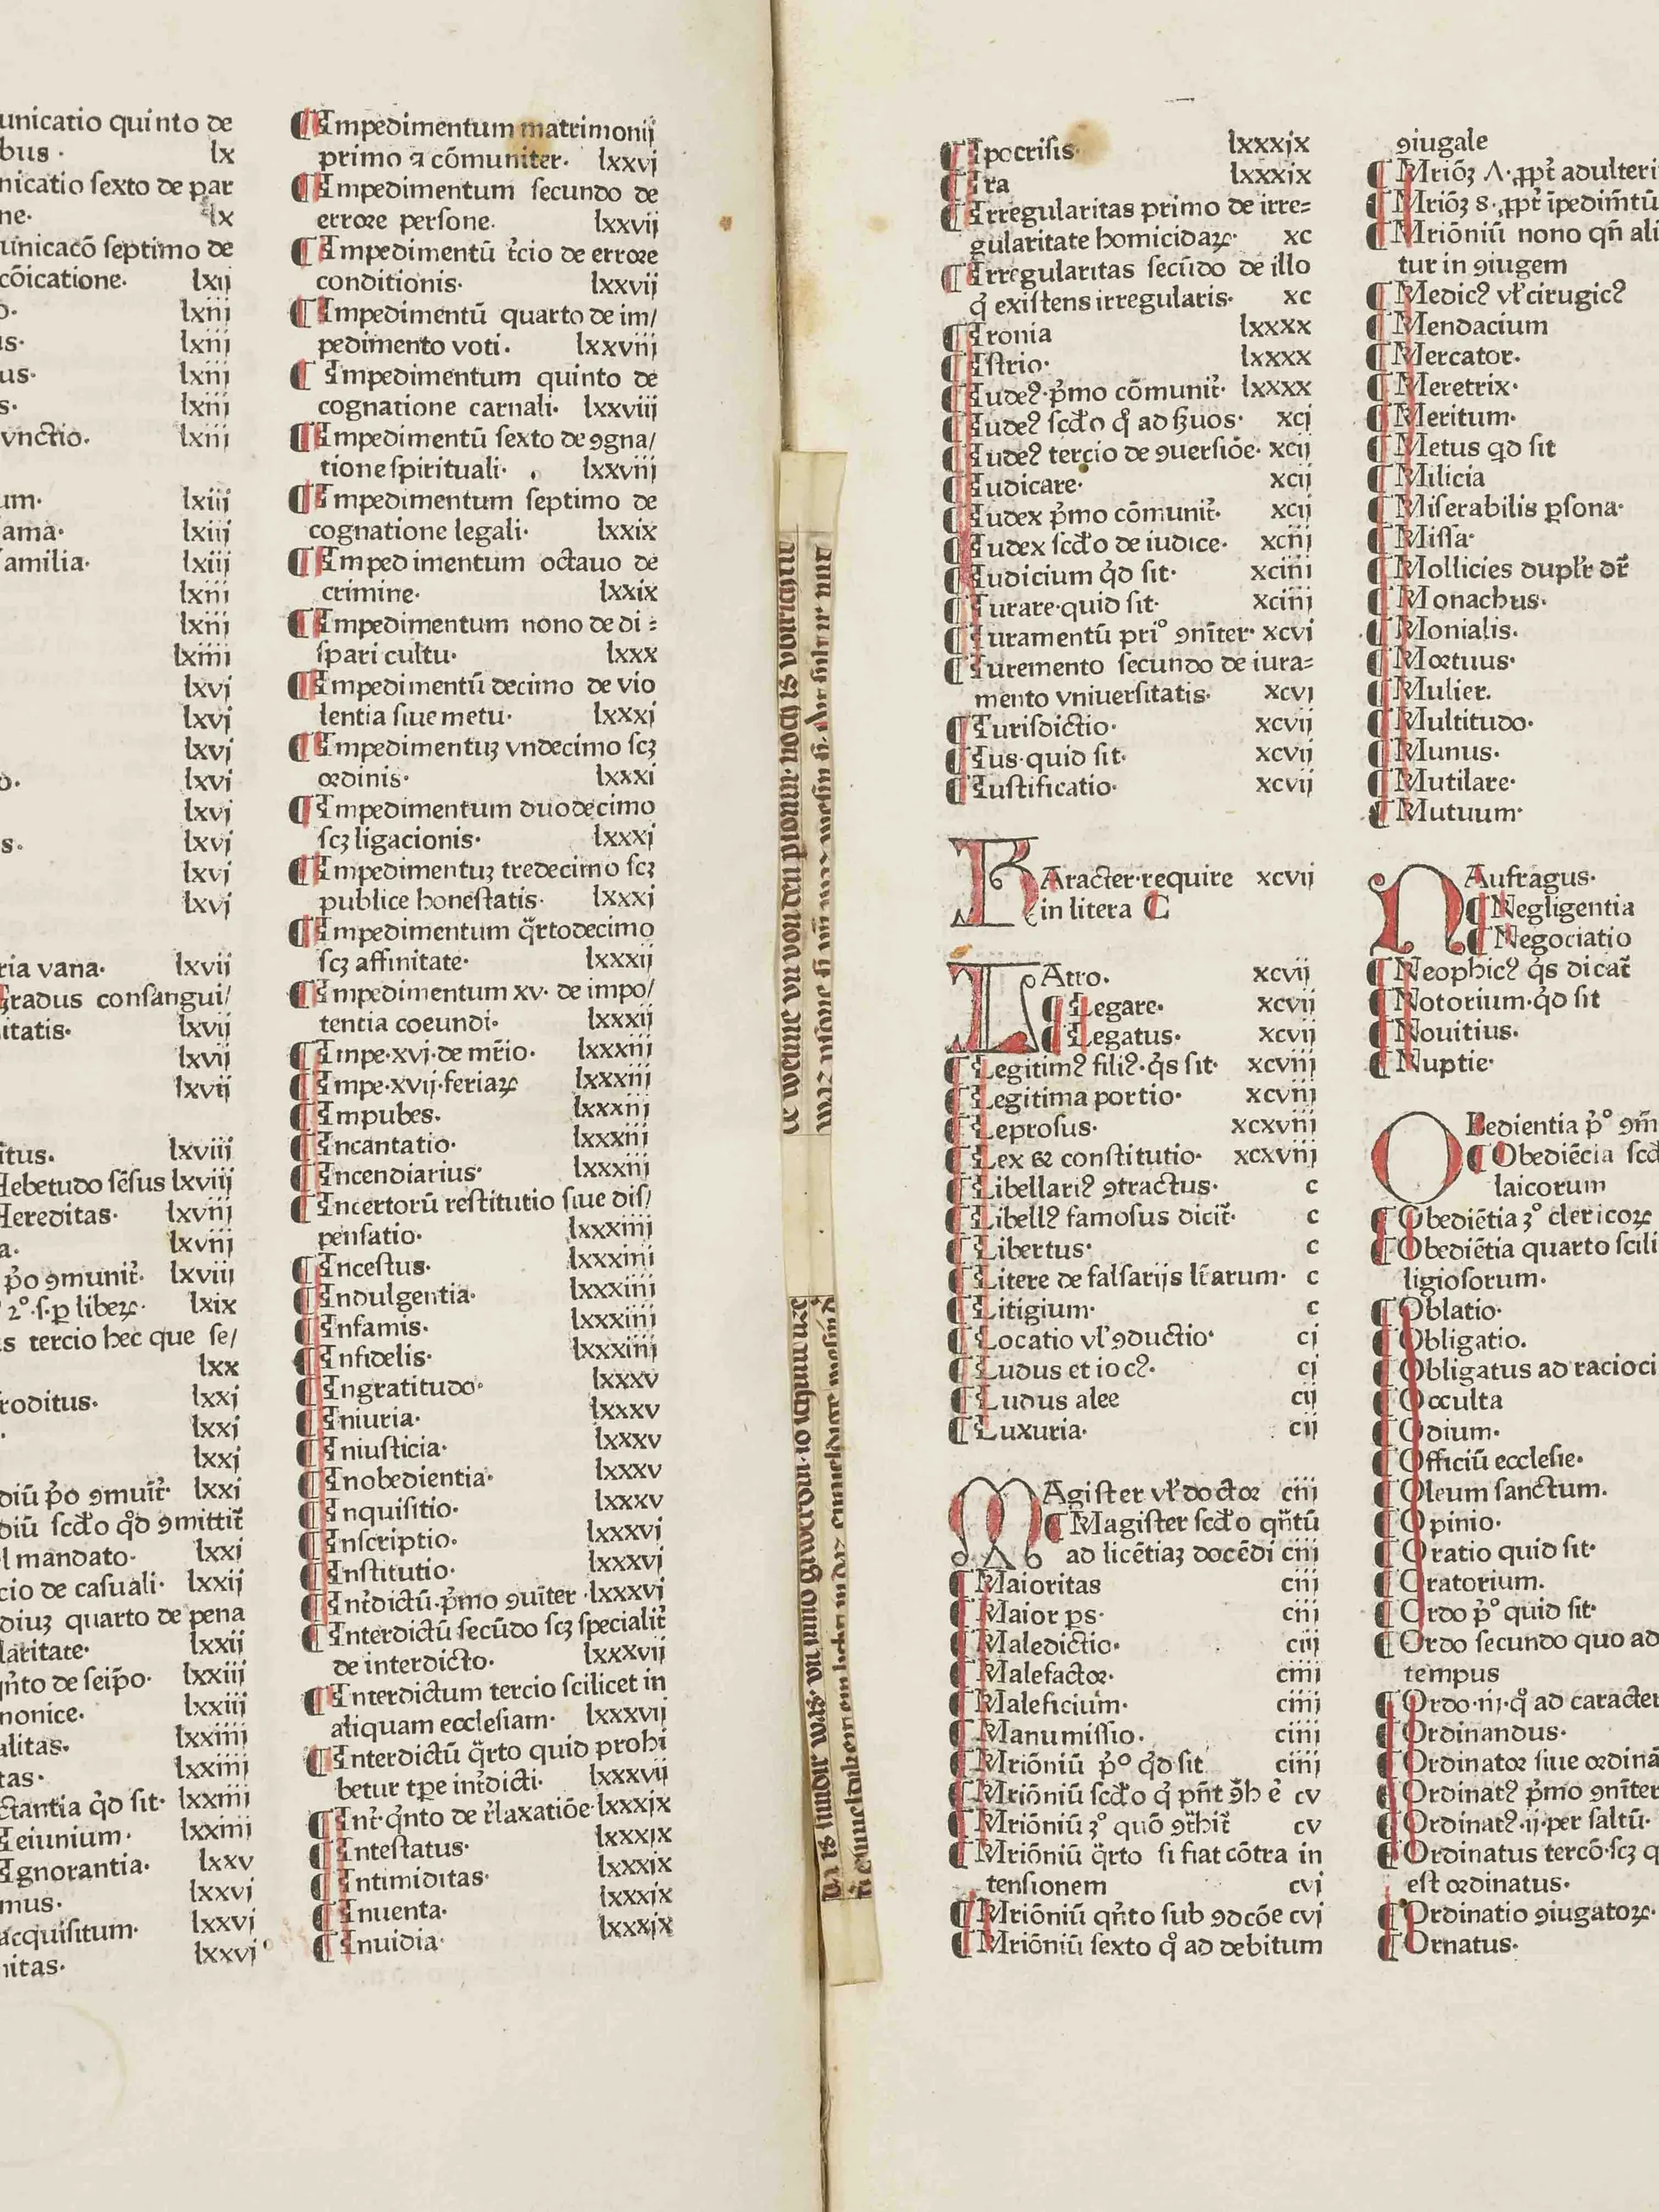 unicatio quinto de
bus · lx
nicatio ſexto de par
ne· lx
unicacō ſeptimo de
cōicatione· lxij
o· lxiij
us· lxiij
us· lxiij
s· lxiij
vnctio. lxiij
um· lxiij
ama· lxiij
amilia· lxiij
lxiij
lxiij
lxiiij
lxvj
lxvj
lxvj
o. lxvj
lxvj
s. lxvj
lxvj
lxvj
ria vana. lxvij
Gradus conſangui/
itatis· lxvij
lxvij
lxvij
itus. lxviij
Hebetudo ſēſus lxviij
Hereditas· lxviij
a. lxviij
p̄o ꝯmunit̄· lxviij
2°·ſ·ꝑ liberꝝ· lxix
s tercio hec que ſe/
lxx
roditus. lxxj
. lxxj
lxxj
diū p̄o ꝯmuit̄· lxxj
diū ſcd̄o qd̄ ꝯmittit̄
l mandato· lxxj
cio de caſuali· lxxij
diuꝫ quarto de pena
laritate· lxxij
qn̄to de ſeip̄o· lxxiij
nonice. lxxiij
alitas. lxxiiij
tas· lxxiiij
ctantia qd̄ ſit· lxxiiij
Ieiunium· lxxiiij
Ignorantia· lxxv
mus. lxxvj
acquiſitum· lxxvj
nitas. lxxvj
¶Impedimentum matrimonij
primo ⁊ cōmuniter· lxxvj
¶Impedimentum ſecundo de
errore perſone. lxxvij
¶Impedimentū t̄cio de errore
conditionis· lxxvij
¶Impedimentū quarto de im/
pedimento voti. lxxviij
¶Impedimentum quinto de
cognatione carnali· lxxviij
¶Impedimentū ſexto de ꝯgna/
tione ſpirituali· lxxviij
¶Impedimentum ſeptimo de
cognatione legali· lxxix
¶Impedimentum octauo de
crimine· lxxix
¶Impedimentum nono de di⸗
ſpari cultu· lxxx
¶Impedimentū decimo de vio
lentia ſiue metu· lxxxj
¶Impedimentuꝫ vndecimo ſcꝫ
ordinis· lxxxj
¶Impedimentum duodecimo
ſcꝫ ligacionis· lxxxj
¶Impedimentuꝫ tredecimo ſcꝫ
publice honeſtatis· lxxxj
¶Impedimentum q̄rtodecimo
ſcꝫ affinitate· lxxxij
¶Impedimentum xv· de impo/
tentia coeundi· lxxxij
¶Impe·xvj·de mr̄io· lxxxiij
¶Impe·xvij·feriaꝝ lxxxiij
¶Impubes. lxxxiij
¶Incantatio· lxxxiij
¶Incendiarius· lxxxiij
¶Incertorū reſtitutio ſiue diſ/
penſatio· lxxxiiij
¶Inceſtus. lxxxiiij
¶Indulgentia· lxxxiiij
¶Infamis· lxxxiiij
¶Infidelis· lxxxiiij
¶Ingratitudo· lxxxv
¶Iniuria· lxxxv
¶Iniuſticia· lxxxv
¶Inobedientia· lxxxv
¶Inquiſitio· lxxxv
¶Inſcriptio. lxxxvj
¶Inſtitutio· lxxxvj
¶Int̄dictū·p̄mo ꝯuīter· lxxxvj
¶Interdictū ſecūdo ſcꝫ ſpecialit̄
de interdicto. lxxxvij
¶Interdictum tercio ſcilicet in
aliquam eccleſiam· lxxxvij
¶Interdictū q̄rto quid prohi
betur tp̄e int̄dicti· lxxxvij
¶Int̄·qn̄to de r̄laxatiōe·lxxxix
¶Inteſtatus· lxxxix
¶Intimiditas· lxxxix
¶Inuenta· lxxxix
¶Inuidia· lxxxix
¶Ipocriſis· lxxxix
¶Ira lxxxix
¶Irregularitas primo de irre⸗
gularitate homicidaꝝ· xc
¶Irregularitas ſecūdo de illo
q̄ exiſtens irregularis· xc
¶Ironia lxxxx
¶Iſtrio· lxxxx
¶Iudeꝰ·p̄mo cōmunit̄· lxxxx
¶Iudeꝰ ſcd̄o q̊ ad ſuos· xcj
¶Iudeꝰ tercio de ꝯuerſiōe· xcij
¶Iudicare· xcij
¶Iudex p̄mo cōmunit̄· xcij
¶Iudex ſcd̄o de iudice· xciij
¶Iudicium qd̄ ſit· xciiij
¶Iurare·quid ſit· xciiij
¶Iuramentū pri° ꝯnīter· xcvj
¶Iuremento ſecundo de iura⸗
mento vniuerſitatis· xcvj
¶Iurisdictio· xcvij
¶Ius·quid ſit· xcvij
¶Iuſtificatio· xcvij
KAracter·require xcvij
in litera C
LAtro. xcvij
¶Legare· xcvij
¶Legatus. xcvij
¶Legitimꝰ filiꝰ·q̄s ſit· xcviij
¶Legitima portio· xcviij
¶Leproſus· xcxviij
¶Lex & conſtitutio· xcxviij
¶Libellariꝰ ꝯtractus· c
¶Libellꝰ famoſus dicit̄· c
¶Libertus· c
¶Litere de falſarijs lr̄arum· c
¶Litigium· c
¶Locatio vl̄ ꝯductio· cj
¶Ludus et iocꝰ· cj
¶Ludus alee cij
¶Luxuria· cij
MAgiſter vl̄ doctor ciij
¶Magiſter ſcd̄o qn̄tū
ad licētiaꝫ docēdi ciij
¶Maioritas ciij
¶Maior ps· ciij
¶Maledictio· ciij
¶Malefactor. ciiij
¶Maleficium· ciiij
¶Manumiſſio. ciiij
¶Mriōniū p̄° qd̄ ſit ciiij
¶Mriōniū ſcd̄o q̄ pn̄t ꝯ̄h ē cv
¶Mriōniū ꝫ° quō ꝯt̄hit̄ cv
¶Mriōniū q̄rto ſi fiat cōtra in
tenſionem cvj
¶Mriōniū qn̄to ſub ꝯdcōe cvj
¶Mriōniū ſexto q̊ ad debitum
ꝯiugale
¶Mriōꝫ Λ·ꝓpt̄ adulteri
¶Mriōꝫ 8·ꝓpt̄ īpedim̄tū
¶Mriōniū nono qn̄ ali
tur in ꝯiugem
¶Medicꝰ vl̄ cirugicꝰ
¶Mendacium
¶Mercator·
¶Meretrix·
¶Meritum·
¶Metus qd ſit
¶Milicia
¶Miſerabilis ꝑſona·
¶Miſſa·
¶Mollicies dupl̄r dr̄
¶Monachus·
¶Monialis.
¶Mortuus·
¶Mulier.
¶Multitudo·
¶Munus·
¶Mutilare·
¶Mutuum·
NAufragus·
¶Negligentia
¶Negociatio
¶Neophicꝰ q̄s dicat̄
¶Notorium·qd̄ ſit
¶Nouitius·
¶Nuptie·
OBedientia p̄° ꝯm̄
¶Obediēcia ſcd
laicorum
¶Obediētia ꝫ° clericoꝝ
¶Obediētia quarto ſcili
ligioſorum·
¶Oblatio·
¶Obligatio.
¶Obligatus ad racioci
¶Occulta
¶Odium·
¶Officiū eccleſie·
¶Oleum ſanctum.
¶Opinio·
¶Oratio quid ſit·
¶Oratorium.
¶Ordo p̄° quid ſit·
¶Ordo ſecundo quo ad
tempus
¶Ordo·iij·q̊ ad caracter
¶Ordinandus·
¶Ordinator ſiue ordinā
¶Ordinatꝰ p̄mo ꝯnīter
¶Ordinatꝰ·ij·per ſaltū·
¶Ordinatus tercō·ſcꝫ q
eſt ordinatus·
¶Ordinatio ꝯiugatoꝝ·
¶Ornatus·